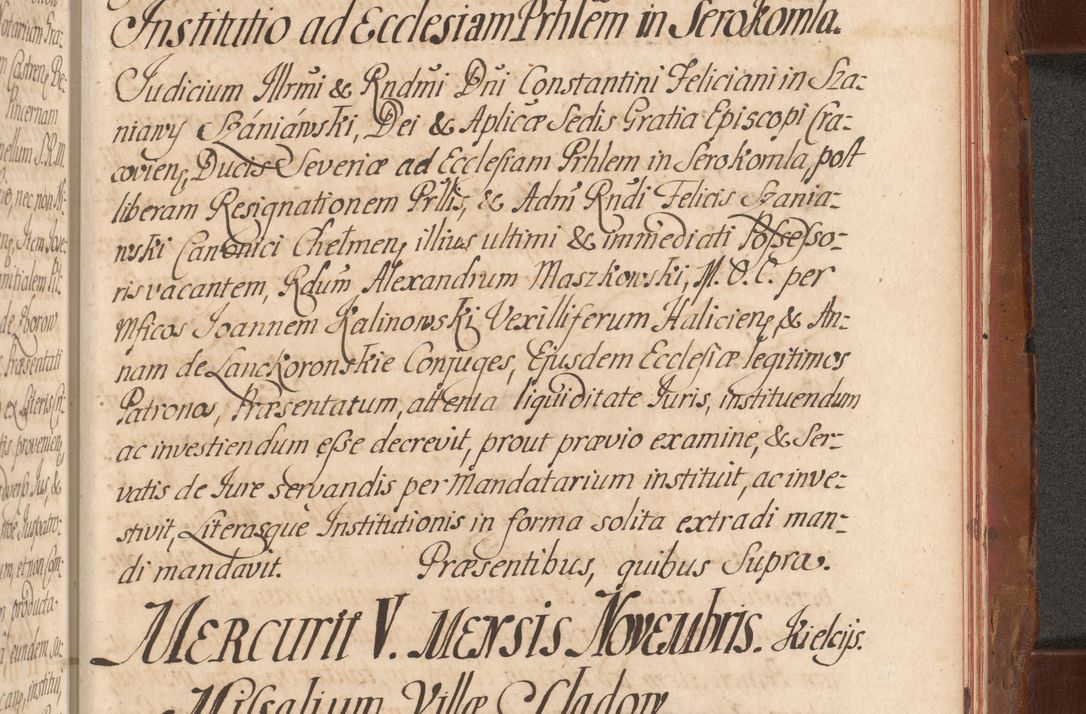 Institutio ad Ecclesiam Prhlem in Serokomla.
Judicium Illrmi & Rndmi Dni Constantini Feliciani in Sza-
niawy Szániáwski, Dei & Aplicæ Sedis Gratia Episcopi Cra-
covien, Ducis Severiæ ad Ecclesiam Prhlem in Serokomla, post
liberam Resignationem Prllis, & Adm Rndi Felicis Szania-
wski Canonici Chelmen, illius ultimi & immediati Possesso-
ris vacantem, Rdum Alexandrum Maszkowski, M. O. C. per
Mficos Joannem Kalinowski Vexilliferum Halicien, & An-
nam de Lanckoronskie Conjuges, Ejusdem Ecclesiæ legitimos
Patronos, Præsentatum, attenta liquiditate Juris, instituendum
ac investiendum esse decrevit, prout prævio examine, & Ser-
vatis de Jure servandis per Mandatarium instituit, ac inve-
stivit, Literasque Institutionis in forma solita extradi man-
di mandavit. Præsentibus, quibus Supra.
Mercurii V. Mensis Novembris. Kielcijs.
Missalium Villæ Sladow